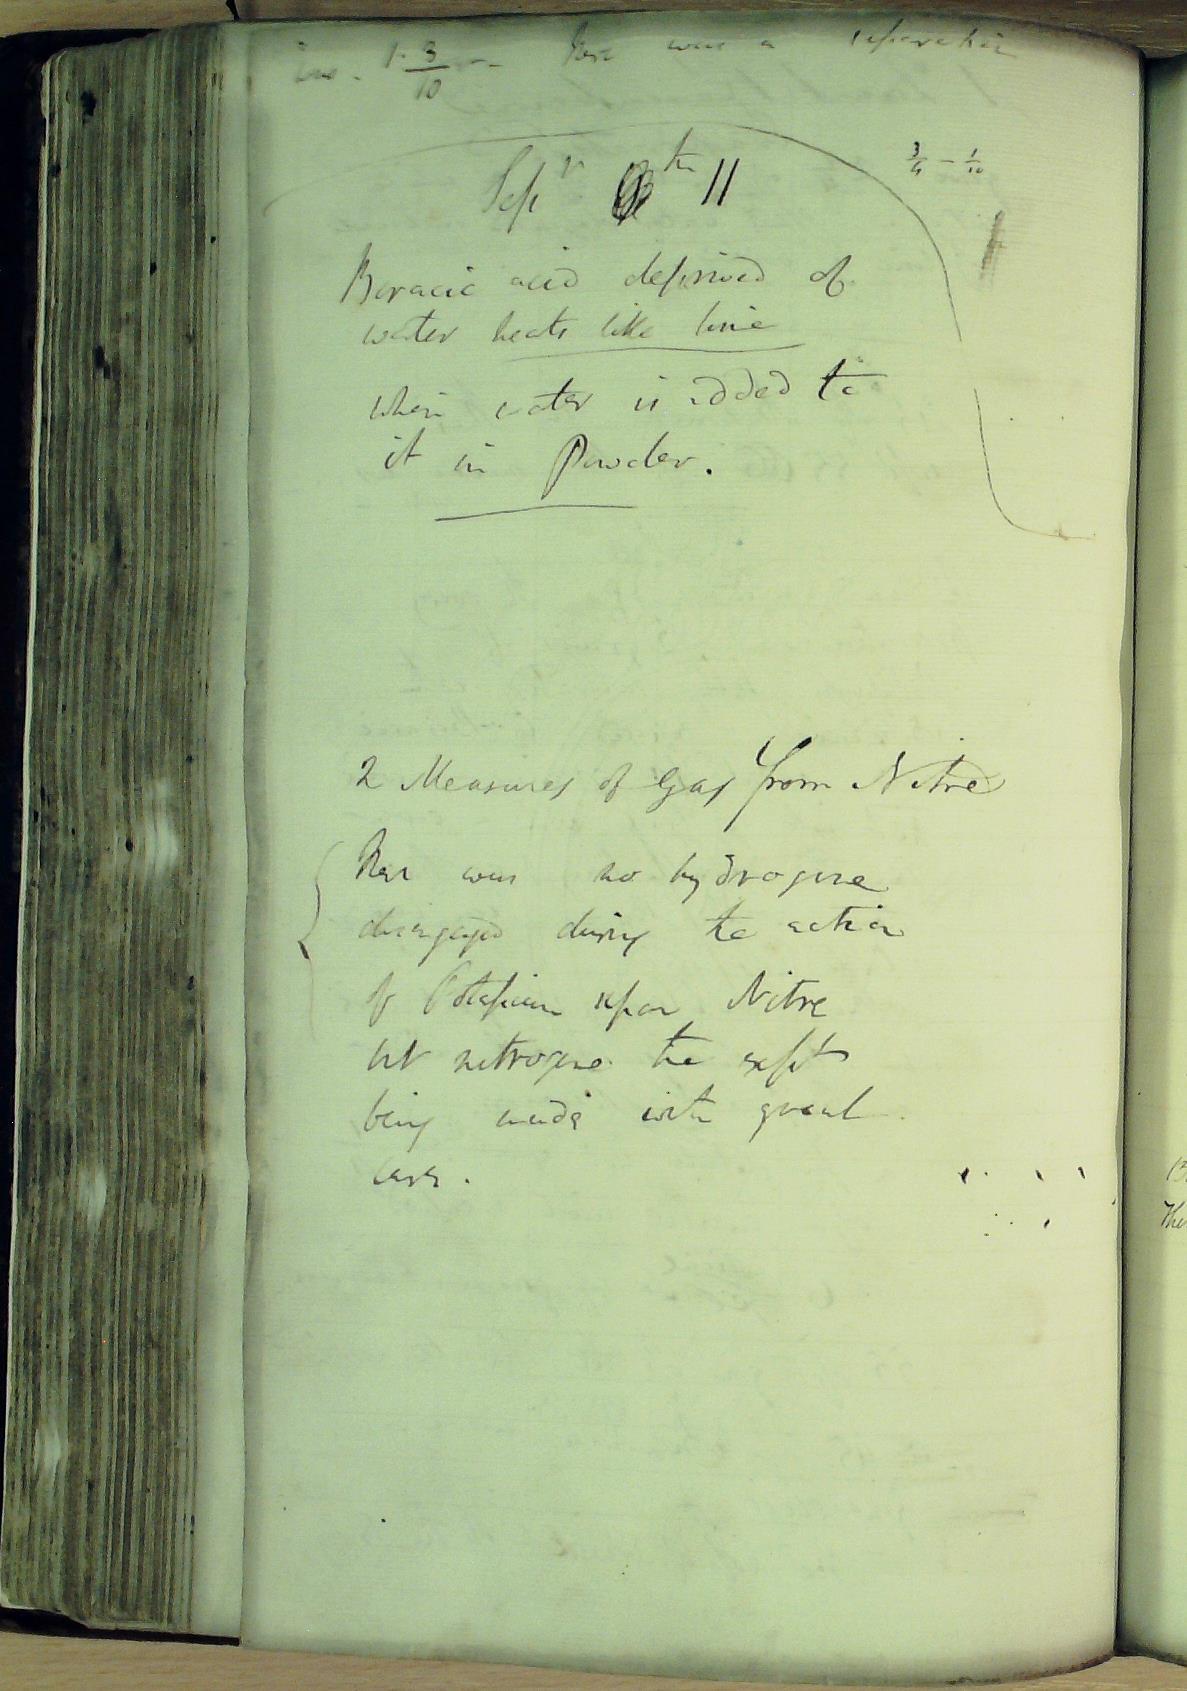 1 3/10 - There was a separation
3/4 - 1/10
Sepr th 11
Boracic acid deprived of
water heats like lime
when water is added to
it in Powder.
2 Measures of Gas from Nitre
There was no hydrogene
disengaged during the action
of Potassium upon Nitre
but nitrogene the expt
being made with great
care.